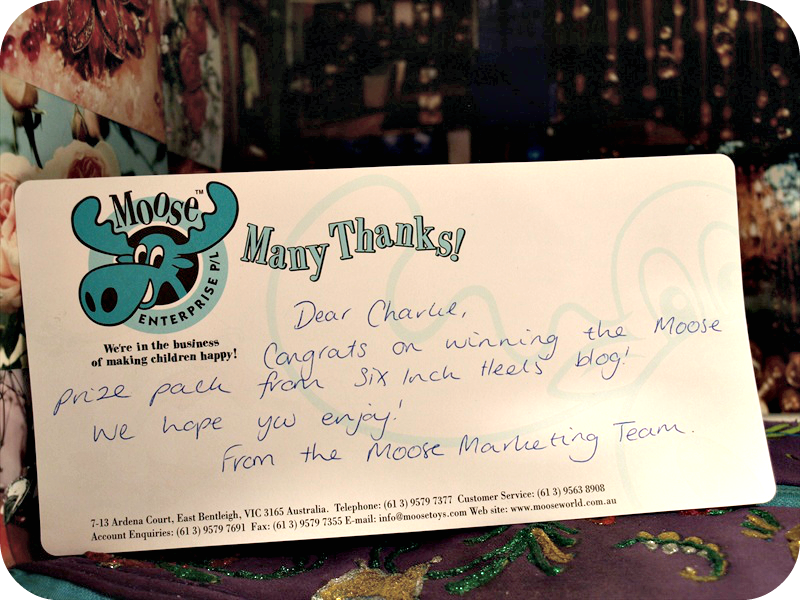 Moose™
ENTERPRISE P/L
We're in the business
of making children happy!
Many Thanks!
Dear Charlie,
Congrats on winning the Moose
prize pack from Six Inch Heels blog!
We hope you enjoy!
From the Moose Marketing Team.
7-13 Ardena Court, East Bentleigh, VIC 3165 Australia. Telephone: (61 3) 9579 7377 Customer Service: (61 3) 9563 8908
Account Enquiries: (61 3) 9579 7691 Fax: (61 3) 9579 7355 E-mail: info@moosetoys.com Web site: www.mooseworld.com.au